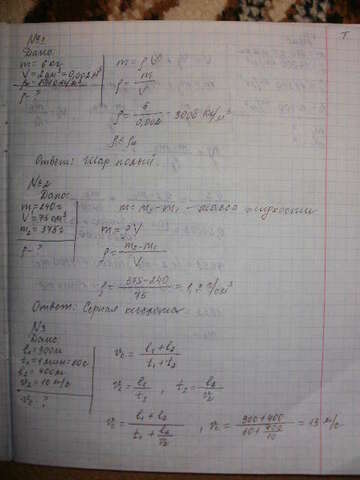 №1
Дано:
m = 6 кг
V = 2 дм³ = 0,002 м³
ρ - ?
m = ρV
ρ = m/V
ρ = 6/0,002 = 3000 кг/м³
Ответ: Шар полый.
№2
Дано:
m₁ = 240 г
V = 75 см³
m₂ = 375 г
ρ - ?
m = m₂ - m₁ - масса жидкости
m = ρV
ρ = (m₂ - m₁)/V
ρ = (375 - 240)/75 = 1,8 г/см³
Ответ: Серная кислота.
№3
Дано:
l₁ = 300 м
t₁ = 1 мин = 60 с
l₂ = 400 м
v₂ = 10 м/с
?
v = (l₁ + l₂)/(t₁ + t₂)
v₂ = l₂/t₂, t₂ = l₂/v₂
v = (l₁ + l₂)/(t₁ + l₂/v₂), v =